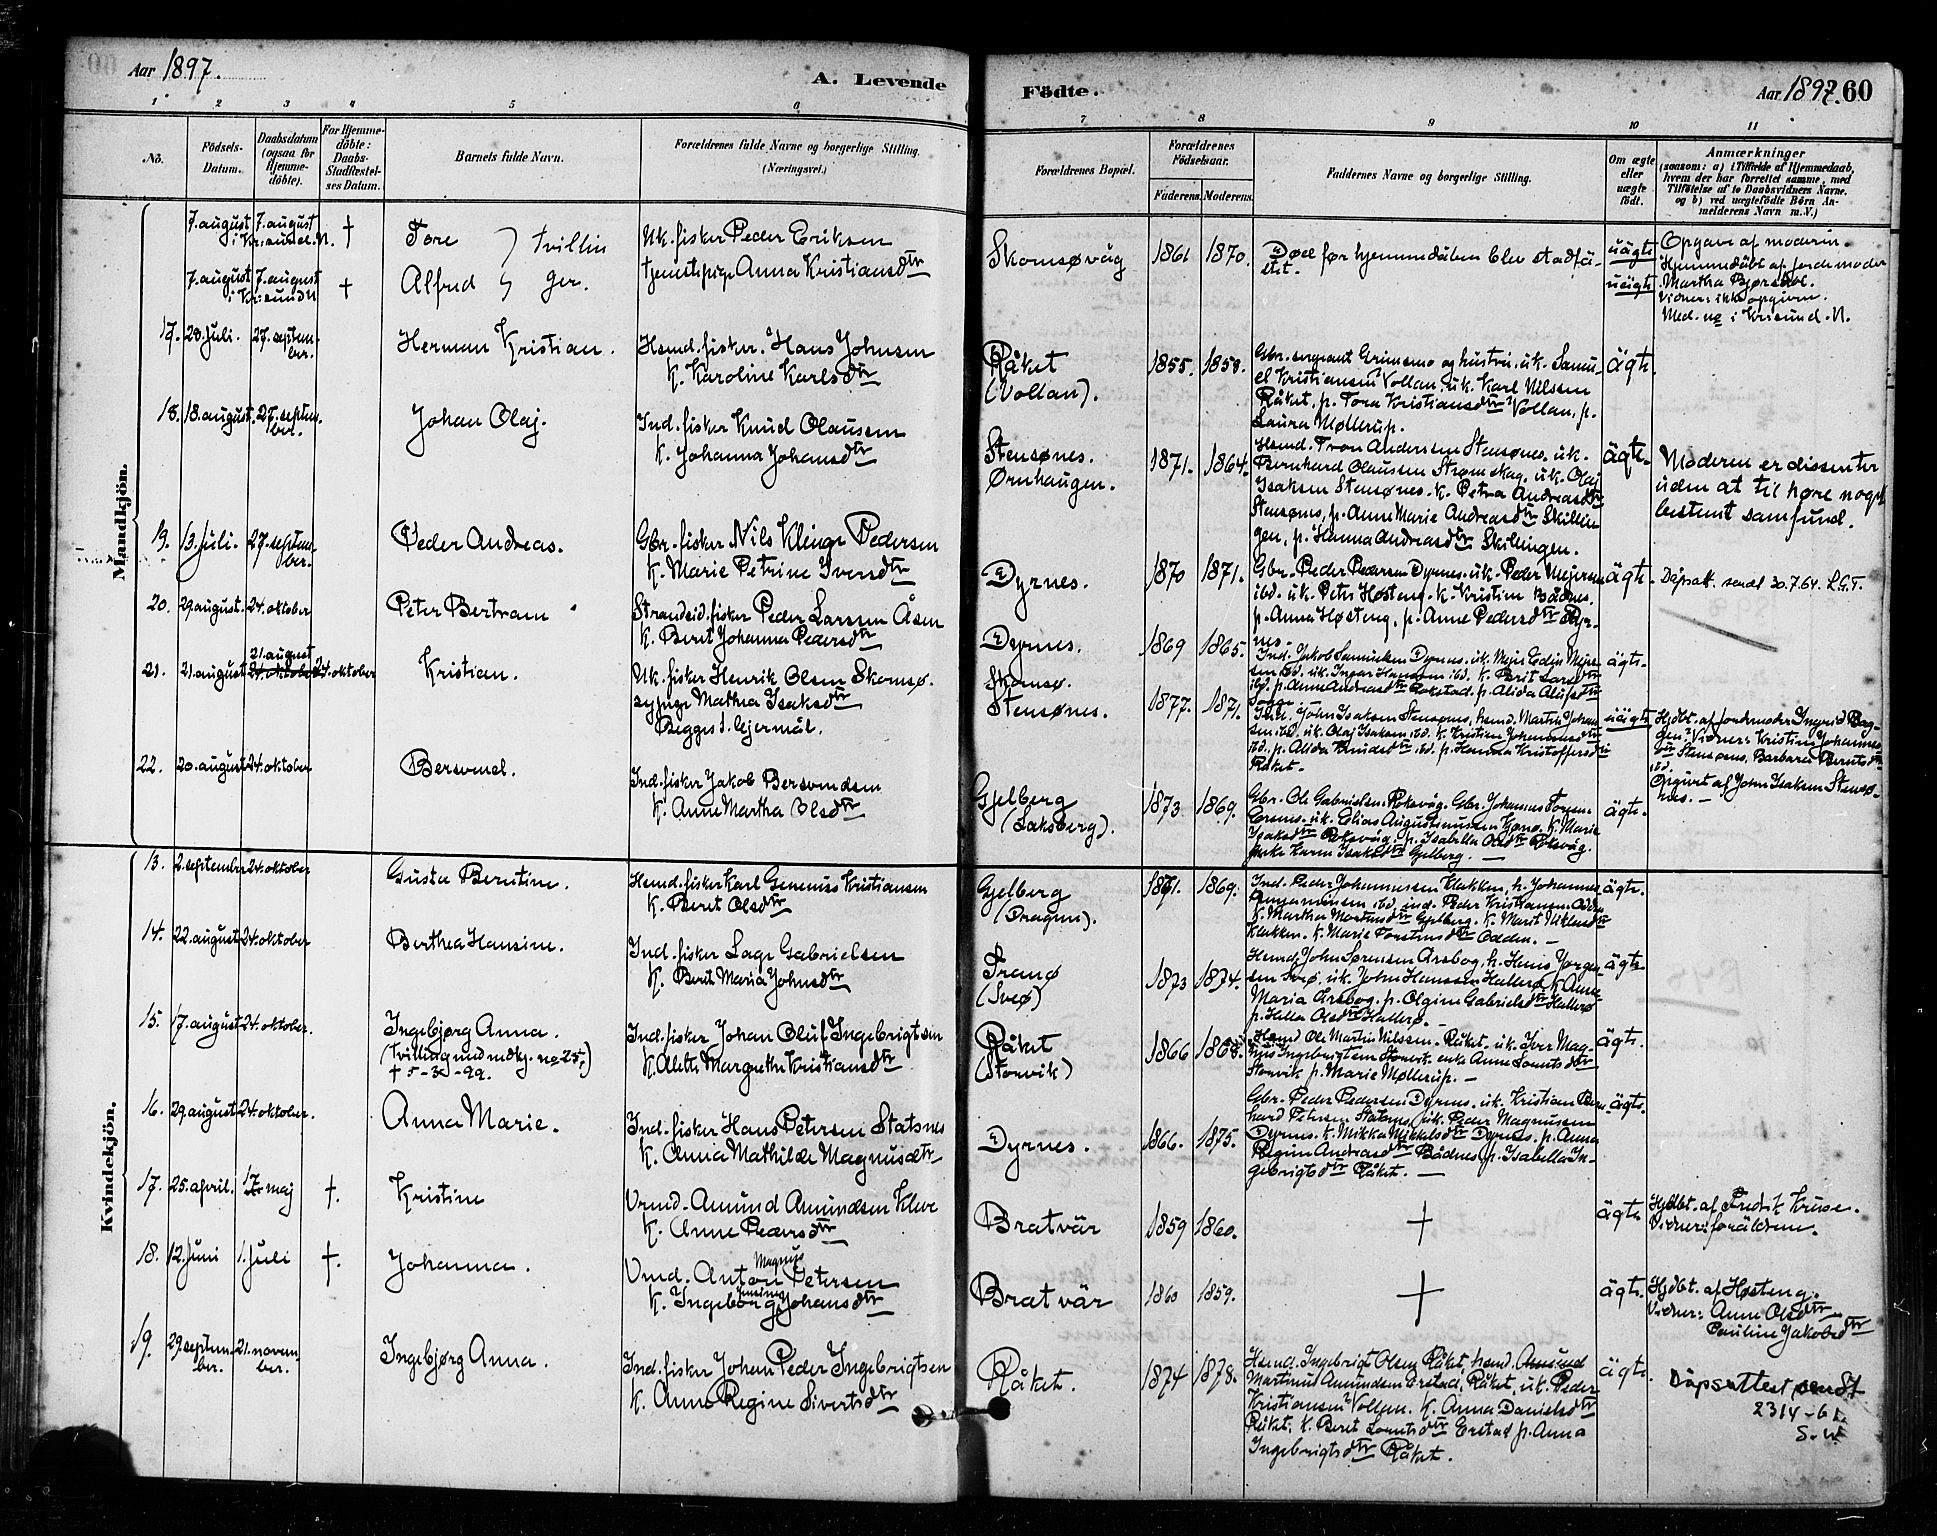 Aar 1897.
A. Levende
Födte.
Aar 1897. 60
1 2 3 4 5 6 7 8 9 10 11
No.
Födsels-
Datum.
Daabsdatum
(ogsaa for
Hjemme-
döbte).
For Hjemme-
döbte:
Daabs-
Stadfæstel-
ses Datum.
Barnets fulde Navn.
Forældrenes fulde Navne og borgerlige Stilling.
(Næringsvei.)
Forældrenes Bopæl.
Forældrenes
Födselsaar.
Faderens. Moderens.
Faddernes Navne og borgerlige Stilling.
Om ægte
eller
uægte
födt.
Anmærkninger
(saasom: a) i Tilfælde af Hjemmedaab,
hvem der har forrettet samme, med
Tilföielse af to Daabsvidners Navne.
og b) ved uægtefödte Börn An-
melderens Navn m. V.)
Mandkjön.
7. august 7. august † Tore } tvillin
i Kr.sund. N.
Uk. fisker Peder Eriksen
tjenestpige Anna Kristiansdtr
Skomsøvåg 1861 1870.
Død før hjemmedåben blev stadfä-
stet.
uägte
Opgave af moderen.
Hjemmedöbt af jordemoder
Martha Bjørsdol.
Vidner: ikke opgivne.
Med. no i Krisund. N.
7. august 7. august † Alfred } ger.
i Kr.sund N
uägte
17. 28. juli. 27. septem-
ber.
Herman Kristian.
Hsmd. fisker. Hans Johnsen
K. Karoline Karlsdtr
Råket
(Vollan).
1855. 1858.
Gbr. sergeant Grimsmo og hustru, uk. Samu-
el Kristiansen Vollan, uk. Karl Nilssen
Råket, p. Tora Kristiansdtr Vollan, p.
Laura Møllerup.
ägte.
18. 18. august. 27. septem-
ber.
Johan Olaj.
Ind. fisker Knud Olaussen
K. Johanna Johansdtr
Stensønes.
Ørnhaugen.
1871. 1864.
Hsmd. Tron Andersen Stensønes, uk.
Bernhard Olaussen Strømskag, uk. Olaj
Isaksen Stensønes. k. Petra Andreasdtr
Stensønes, p. Anne Marie Andreasdtr Skillin
gen, p. Hanna Andreasdtr Skillingen.
ägte.
Moderen er dissenter
uden at til høre noget
bestemt samfund.
19. 13. juli. 27. septem-
ber.
Peder Andreas.
Gbr. fisker Nils Klinge Pedersen
K. Marie Petrine Iversdtr
Dyrnes.
1870 1871.
Gbr. Peder Pedersen Dyrnes. uk. Peder Mejersen
ibd. uk. Peter Høsteng. k. Kristine Bådnes.
p. Anna Høsteng, p. Anne Pedersdtr Dyr-
nes.
ägte.
Dåpsatt. sendt 30.7.64. R.G.T.
20. 29 august. 24. oktober
Peter Bertram
Strandsid. fisker Peder Larssen Åsen
K. Berit Johanna Pedersdtr
Dyrnes.
1869 1865.
Ind. Jakob Samuelsen Dyrnes. uk. Mejer Edin Mejer-
sen ibd. uk. Ingar Hansen ibd. k. Berit Larsdtr
ibd. p. Anne Andreasdtr Rokstad. p. Alida Olufsdtr
ägte.
21. 21. august 21. august 24. oktober
Kristian.
Uk. fisker Henrik Olsen Skomsø.
sypige Mathea Isaksdtr
Begges 1. lejermål.
Skomsø.
Stensønes.
1877. 1871.
Ind. John Isaksen Stensønes, hsmd. Martin Johan
sen ibd. uk. Olaj Isaksen ibd. k. Kristine Johannesdtr
ibd. p. Alida Knudsdtr ibd. p. Hanna Kristoffersdtr
Råket.
uägte
Hjdbt. af jordemoder Ingrid Bag-
gen. Vidner: Kristine Johannes-
dtr Stensønes, Barbara Berntsdtr
ibd.
Opgivet af John Isaksen Stensø-
nes.
22. 20. august 24. oktober
Bersvend.
Ind. fisker Jakob Bersvendsen
K. Anne Martha Olsdtr
Gjelberg
(Laksberg).
1873 1869.
Gbr. Ole Gabrielsen Roksvåg. Gbr. Johannes Toren
Korsnes. uk. Elias Augustinussen Kjønø. K. Marie
Isaksdtr Roksvåg. p. Isabella Olsdtr Roksvåg.
enke Karen Isaksdtr Gjelberg.
ägte.
Kvindekjön.
13. 2. september 24. oktober
Gusta Berntine.
Hsmd. fisker Karl Genenius Kristiansen
K. Beret Olsdtr
Gjelberg
(Dragnes).
1871. 1869.
Ind. Peder Johannessen Klakken, h. Johannes
Benjaminsen ibd, ind. Peder Kristiansen Odden
K. Martha Mortensdtr Gjelberg. K. Marit Niklasdtr
Klakken. K. Marie Torstensdtr Odden.
ägte.
14. 22. august 24. oktober
Berthea Hansine.
Ind. fisker Lage Gabrielsen
K. Berit Maria Johnsdtr
Tranø
(Sveø)
1873 1874.
Hsmd. John Sørensen Arsbog, h. Henis Jørgen-
sen Sveø, uk. John Hansen Hallerø, k. Anne-
Maria Arsbog. p. Olgine Gabrielsdtr Hallerø
p. Helle Olsdtr Hallerø.
ägte.
15. 17. august 24. oktober.
Ingebjørg Anna.
(tvilling med mdkj. no 25.)
† 5-3-99.
Ind. fisker Johan Oluf Ingebrigtsen
K. Alette Margrethe Kristiansdtr
Råket
(Storvik)
1866 1868.
Hsmd Ole Martin Nilssen. Råket. uk. Iver Mag-
nus Ingebrigtsen Storvik. enke Anne Larntsdtr
Storvik p. Marie Møllerup.
ägte.
16. 29. august 24. oktober.
Anna Marie.
Ind. fisker Hans Petersen Statsnes
K. Anna Mathilde Magnusdtr
Dyrnes.
1866. 1875.
Gbr. Peder Pedersen Dyrnes. uk. Kristian Bern-
hard Petersen Statsnes, uk. Peder Magnussen
Dyrnes. k. Mikka Mikkelsdtr Dyrnes. p. Anna
Regine Andreasdtr Bådnes, p. Isabella In-
gebrigtsdtr Råket.
ägte.
17. 25. april. 17. maj †.
Kristine
Vrmd. Amund Amundsen Kleve
K. Anne Pedersdtr
Bratvär
1859 1860.
†
ägte
Hjdbt. af Fredrik Kruse.
Vidner: foräldrene.
18. 12. juni 1. juli †.
Johanna.
Vrmd. Anton Magnus Petersen
K. Ingeborg Johansdtr
Bratvär
1860 1859.
†
ägte.
Hjdbt. af Høsteng.
Vidner: Anne Olsdtr
Pauline Jakobsdtr
19. 29. septem-
ber. 21. novem-
ber.
Ingebjørg Anna.
Ind. fisker Johan Peder Ingebrigtsen
K. Anne Regine Sivertsdtr
Råket.
1874 1878.
Hsmd. Ingebrigt Olsen Råket, hsmd. Amund
Martinus Amundsen Erstad, Råket, uk. Peder
Kristiansen Vollan. K. Anna Danielsdtr
Råket, K. Beret Larntsdtr Erstad p. Anna
Ingebrigtsdtr Råket.
ägte.
Dåpsattest sendt
23/4-61
S.W